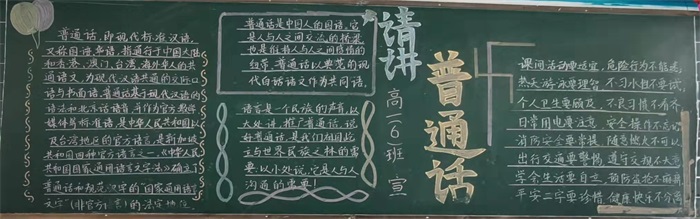 普通话,即现代标准汉语,
又称国语、华语,指通行于中国大陆
和香港、澳门、台湾、海外华人的共
通语文,为现代汉语共通的交际口
语与书面语。普通话基于现代汉语的
语法和北京话语音,并作为官方、教学、
媒体等标准语,是中华人民共和国以
及台湾地区的官方语言,是新加坡
共和国四种官方语言之一。《中华人民
共和国国家通用语言文字法》确立了
普通话和规范汉字的"国家通用语言
文字"(非官方语言)的法定地位。
普通话是中国人的国语,它
是人与人之间交流的桥梁
也是维持人与人之间感情的
纽带。普通话以典范的现
代白话语文作为共同语。
语言是一个民族的声音,从
大处讲,推广普通话,说
好普通话,是我们祖国屹
立与世界民族之林的需
要,以小处说,它是人与人
沟通的需要!
请讲
普通话
高一(6)班 宣
课间活动要适宜,危险行为不能选。
热天游泳要理智,不习水性不要试;
个人卫生要顾及,不良习惯不看齐
日常用电要注意,安全操作不忘记
消防安全要常提,随意燃火不可以
出行交通要警惕,遵守交规不大意
学会生活要自立,预防盗抢不麻痹
平安二字要珍惜,健康快乐不分离